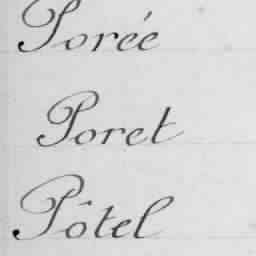 Porée
Poret
Pôtel